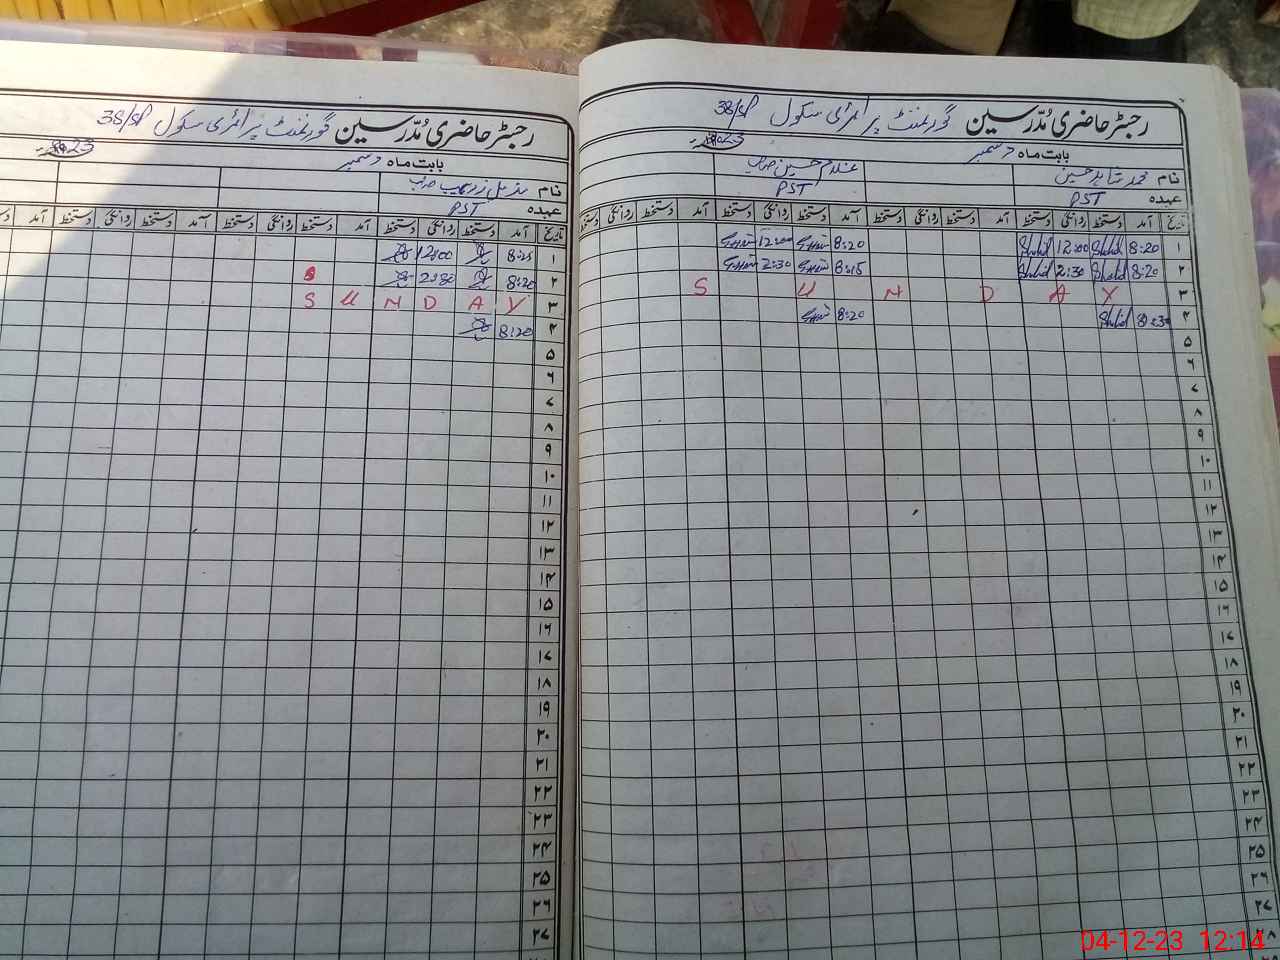 رجسٹر حاضری مُدّرسین گورنمنٹ پرائمری سکول 38/SP
بابت ماہ دسمبر 2023
نام محمد شاہد حسین غلام حسین صاحب
عہدہ PST PST
تاریخ آمد دستخط روانگی دستخط آمد روانگی دستخط آمد دستخط روانگی دستخط آمد روانگی دستخط
۱ 8:20 Shahid 12:00 Shahid 8:20 12:00
۲ 8:20 Shahid 2:30 Shahid 8:15 2:30
۳ S U N D A Y
۴ Shahid 8:20
۵
۶
۷
۸
۹
۱۰
۱۱
۱۲
۱۳
۱۴
۱۵
۱۶
۱۷
۱۸
۱۹
۲۰
۲۱
۲۲
۲۳
۲۴
۲۵
۲۶
۲۷
۲۸
رجسٹر حاضری مُدّرسین گورنمنٹ پرائمری سکول 38/SP
بابت ماہ دسمبر 2023
نام صاحب
عہدہ PST
تاریخ آمد دستخط روانگی دستخط آمد روانگی دستخط آمد روانگی دستخط آمد روانگی دستخط آمد
۱ 8:25 12:00
۲ 8:20 2:30 S
۳ S U N D A Y
۴ 8:20
۵
۶
۷
۸
۹
۱۰
۱۱
۱۲
۱۳
۱۴
۱۵
۱۶
۱۷
۱۸
۱۹
۲۰
۲۱
۲۲
۲۳
۲۴
۲۵
۲۶
۲۷
04-12-23 12:14